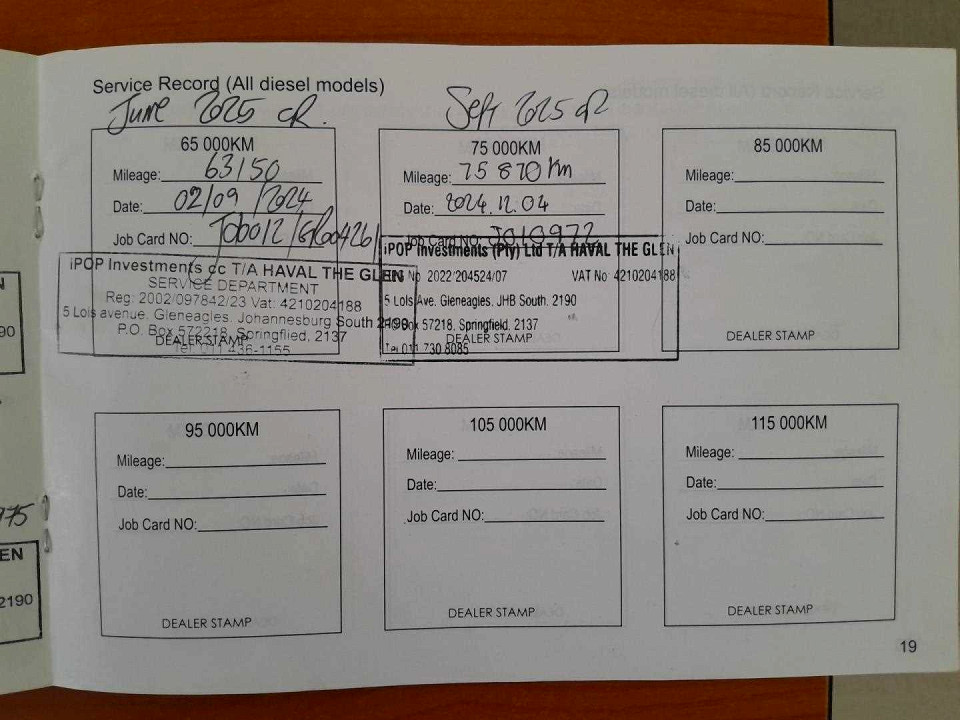 Service Record (All diesel models)
June 2025 or.
Sept 2025 or
65 000KM
Mileage: 63150
Date: 02/09/2024
Job Card NO: Job012/GR004261
iPOP Investments cc T/A HAVAL THE GLEN
SERVICE DEPARTMENT
Reg: 2002/097842/23 Vat: 4210204188
5 Lois avenue, Gleneagles, Johannesburg South 2190
P.O. Box 572218, Springflied, 2137
DEALER STAMP
Tel: 011 436-1155
75 000KM
Mileage: 75 870 Km
Date: 2024.12.04
Job Card NO: J010972
iPOP Investments (Pty) Ltd T/A HAVAL THE GLEN
No 2022/204524/07 VAT No: 4210204188
5 Lois Ave, Gleneagles, JHB South, 2190
Box 57218, Springfield, 2137
DEALER STAMP
Tel 011 730 8085
85 000KM
Mileage:
Date:
Job Card NO:
DEALER STAMP
95 000KM
Mileage:
Date:
Job Card NO:
DEALER STAMP
105 000KM
Mileage:
Date:
Job Card NO:
DEALER STAMP
115 000KM
Mileage:
Date:
Job Card NO:
DEALER STAMP
19
N
90
975
EN
2190